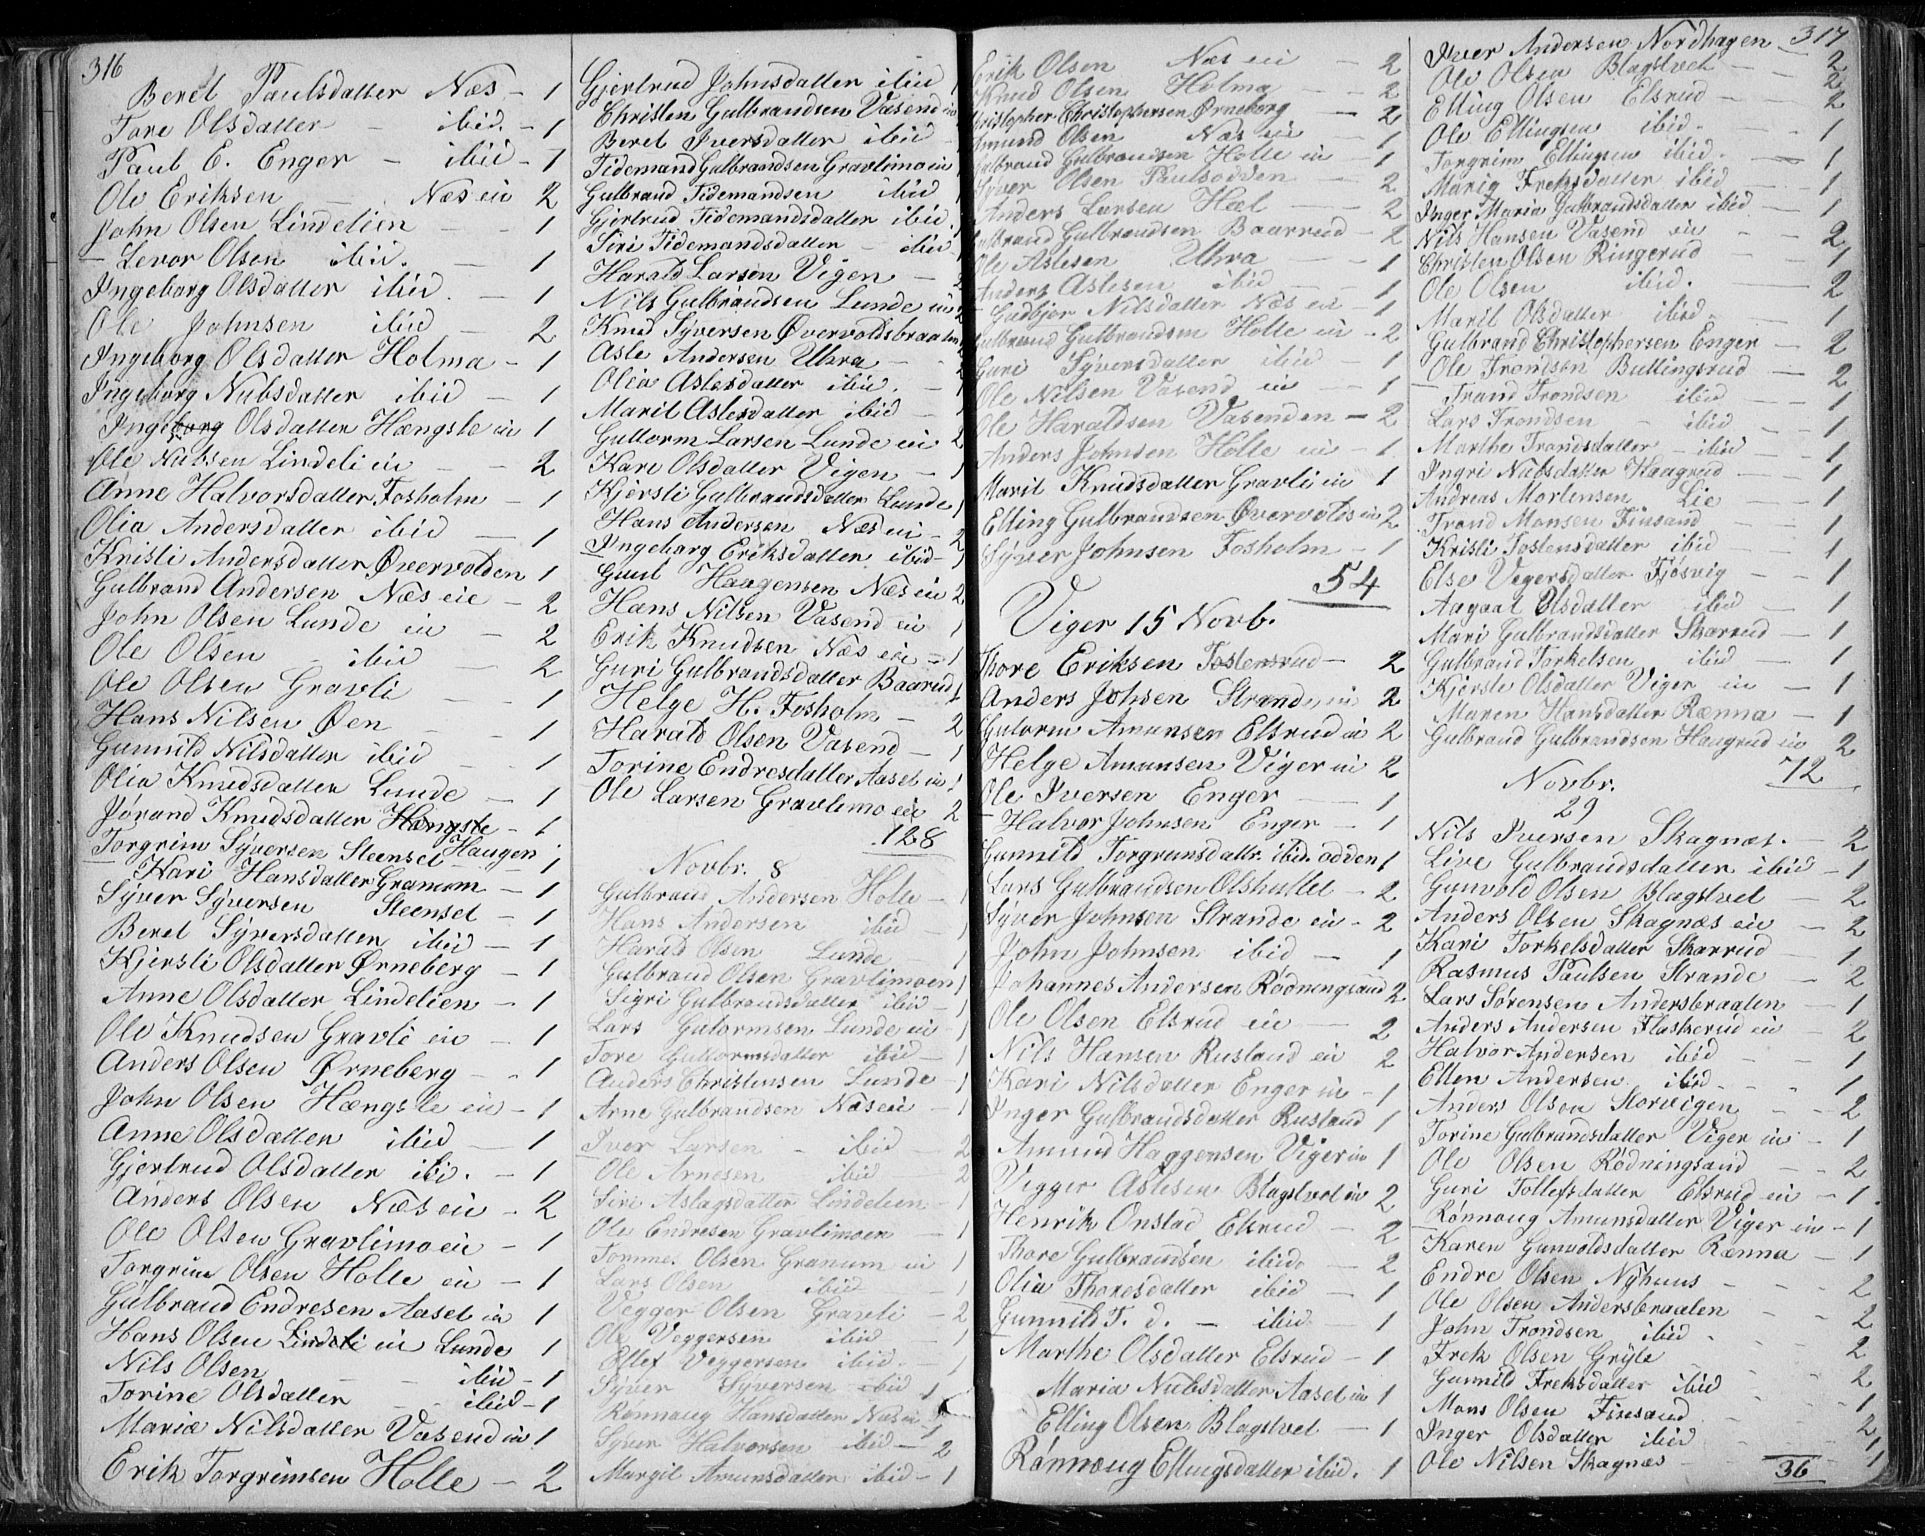 316
Beret Paulsdatter Næs - 1
Tore Olsdatter - ibid. - 1
Paul E. Enger - ibid - 1
Ole Eriksen - Næs eie 2
John Olsen Lindelien - - 1
Levor Olsen ibid. - 1
Ingeborg Olsdatter ibid. - 1
Ole Johnsen ibid - 2
Ingeborg Olsdatter Holma - 1
Ingeborg Nubsdatter ibid - 1
Ingeborg Olsdatter Hængsle eie 1
Ole Nubsen Lindeli eie - - 2
Anne Halvorsdatter Fosholm - 1
Olia Andersdatter ibid - 1
Kristi Andersdatter Øvervolden 1
Gulbrand Andersen Næs eie - 2
John Olsen Lunde eie - 2
Ole Olsen - ibid - 2
Ole Olsen Gravli - - 1
Hans Nilsen Øen - - 1
Gunnild Nilsdatter ibid - - 1
Olia Knudsdatter Lunde - 1
Jørand Knudsdatter Hængsle - 1
Torgrim Syversen Steenset Haugen - 1
Kari Hansdatter Granum - 1
Syver Syversen Steenset - 1
Beret Syversdatter ibid - 1
Kjersti Olsdatter Ørneberg - 1
Anne Olsdatter Lindelien - 1
Ole Knudsen Gravli eie - 1
Anders Olsen Ørneberg - - 1
John Olsen Hængsle eie - 1
Anne Olsdatter ibid - 1
Gjertrud Olsdatter ibi. - 1
Anders Olsen Næs eie - 2
Ole Olsen Gravlimo eie - 1
Torgrim Olsen Holle eie - 1
Gulbrand Endresen Aaset eie 1
Hans Olsen Lindeli eie Lunde 1
Nils Olsen - - ibid - 1
Torine Olsdatter - - ibid - 1
Maria Nilsdatter Vasend eie 1
Erik Torgrimsen Holle - 2
Gjertrud Johnsdatter ibid 1
Christen Gulbrandsen Vasend eie
Beret Iversdatter ibid - 1
Tidemand Gulbrandsen Gravlimo eie 1
Gulbrand Tidemandsen ibid 1
Gjertrud Tidemandsdatter ibid 1
Siri Tidemandsdatter - ibid 1
Harald Larsen Vigen - 2
Nils Gulbrandsen Lunde eie 2
Knud Syversen Øvervoldsbraaten
Asle Andersen Uhra - 2
Olia Aslesdatter ibid. - 1
Marit Aslesdatter ibid - 1
Guttorm Larsen Lunde eie 2
Kari Olsdatter Vigen - 1
Kjersti Gulbrandsdatter Lunde 1
Hans Andersen Næs eie - 2
Ingeborg Eriksdatter ibid - 1
Guul Haagensen Næs eie 2
Hans Nilsen Vasend eie 1
Erik Knudsen Næs eie - 1
Guri Gulbrandsdatter Baarrud 1
Helge H. Fosholm - 2
Harald Olsen Vasend - 1
Torine Endresdatter Aaset eie 1
Ole Larsen Gravlimo eie 2
128
Novbr. 8
Gulbrand Andersen Holle - 1
Hans Andersen ibid - 1
Harald Olsen Lunde 1
Gulbrand Olsen Gravlimoen 1
Sigri Gulbrandsdatter ibid - 1
Lars Gutormsen Lunde eie - 1
Tore Guttormsdatter ibid - 1
Anders Christensen Lunde - 1
Arne Gulbrandsen Næs eie - 1
Iver Larsen - ibid - 2
Ole Arnesen - ibid 2
Siri Aslagsdatter Lindelien - 1
Ole Endresen Gravlimoen - 1
Tomme Olsen Granum eie 1
Lars Olsen ibid - 1
Vegger Olsen Gravli - 2
Ole Veggersen ibid - 1
Ellef Veggersen ibid 1
Syver Syversen ibid 1
Rønnoug Hansdatter Næs eie
Syver Halvorsen ibid - 2
Margit Amunsdatter ibid - 1
317
Erik Olsen Næs eie - 2
Knud Olsen Holma - - 2
Christopher Christophersen Ørneberg - 2
Amund Olsen Næs eie - 1
Gulbrand Gulbrandsen Holle eie - 1
Syver Olsen Paulsodden - 2
Anders Larsen Hæl - - 2
Gulbrand Gulbrandsen Baarrud - 2
Ole Aslesen Uhra - - 1
Anders Aslesen ibid - - 1
Gudbjør Nilsdatter Næs eie - 1
Gulbrand Gulbrandsen Holle eie - 2
Guri Syversdatter ibid - 1
Ole Nilsen Vasend eie - 1
Ole Haraldsen Vasenden - 2
Anders Johnsen Holle eie - 1
Marit Knudsdatter Gravli eie 1
Elling Gulbrandsen Øvervolds eie 2
Syver Johnsen Fosholm - 1
54
Viger 15 Novb.
Thore Eriksen Tostensrud - 2
Anders Johsen Strande eie 2
Gutorm Amunsen Elsrud ei 2
Helge Amunsen Viger ei 2
Ole Iversen Enger - 1
Halvor Johnsen Enger - 1
Gunnild Torgrimsdatt. ibid. odden 1
Lars Gulbrandsen Olshullet - 2
Syver Johnsen Strande eie - 2
John Johnsen ibid - 1
Johannes Andersen Rødningsand 2
Ole Olsen Elsrud eie - 2
Nils Hansen Rustand eie 2
Kari Nilsdatter Enger eie - 1
Inger Gulbrandsdatter Rustand 1
Amund Haggensen Viger eie 1
Vigger Aslesen Blagstvet eie 2
Henrik Onstad Elsrud - 2
Thore Gulbrandsen ibid. - 2
Olia Thoresdatter ibid - 1
Gunnild T. d. - ibid. - 1
Marthe Olsdatter Elsrud - 1
Maria Nubsdatter Aaset eie 1
Elling Olsen Blagstvet - 1
Rønnoug Ellingsdatter ibid. 1
Iver Andersen Nordhagen - 2
Ole Olsen Blagstvet - - 2
Elling Olsen Elsrud - - 2
Ole Ellingsen ibid. - - 1
Torgrim Ellingsen ibid. - 1
Marig Freksdatter ibid - 1
Inger Maria Gulbrandsdatter ibid - 1
Nils Hansen Vasend eie - - 2
Christen Olsen Ringerud - - 1
Ole Olsen ibid. - 2
Marit Olsdatter ibid. - 1
Gulbrand Christophersen Enger - 2
Ole Trondsen Bullingsrud - 2
Trand Trondsen ibid - 1
Lars Trondsen - ibid - 1
Marthe Trondsdatter - ibid - 1
Ingri Nilsdatter Haagrud - 1
Andreas Mortensen Lie - 1
Trond Monsen Finsand - - 1
Kristi Tostensdatter ibid - 1
Else Vegersdatter Fjøsvig - - 1
Aagaat Olsdatter ibid - 1
Mari Gulbrandsdatter Skarrud - 1
Gulbrand Torkelsen ibid - 1
Kjerste Olsdatter Viger eie - 1
Maren Hansdatter Rænna - 1
Gulbrand Gulbrandsen Haugrud eie 2
72
Novbr.
29
Nils Iversen Skagnæs. - 2
Live Gulbrandsdatter ibid - 1
Gunvold Olsen Blagstvet - 2
Anders Olsen Skagnæs eie - 2
Kari Torkelsdatter Skarrud - 1
Rasmus Paulsen Strande - 2
Lars Sørensen Andersbraaten - 1
Anders Andersen Flaskerud eie - 2
Halvor Andersen ibid - - 1
Ellen Andersen ibid. - - 1
Anders Olsen Storvigen - - 2
Torine Gulbrandsdatter Viger eie - 1
Ole Olsen Rødningsand - - 2
Guri Tollefsdatter Elsrud eie - 1.
Rønnoug Amunsdatter Viger eie - 1
Karen Gunvoldsdatter Rænna - 1
Endre Olsen Nyhuus - - 2
Ole Olsen Andersbraaten - - 2
John Trondsen ibid - - 2
Frek Olsen Gryte - - 2
Gunnild Freksdatter ibid - - 2
Mons Olsen Finsand - - 1
Inger Olsdatter ibid - - 2
Ole Nilsen Skagnæs - - 1
36